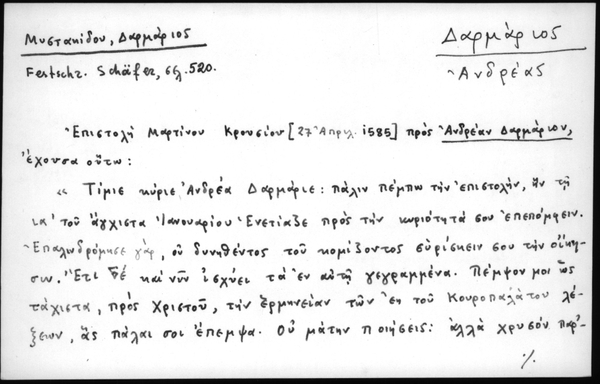 Μυστακίδου, Δαρμάριος
Δαρμάριος
Festschr. Schäfer, σελ. 520.
Ἀνδρέας
Ἐπιστολὴ Μαρτίνου Κρουσίου [27 Ἀπριλ. 1585] πρὸς Ἀνδρέαν Δαρμάριον,
ἔχουσα οὕτω:
« Τίμιε κύριε Ἀνδρέα Δαρμάριε: πάλιν πέμπω τὴν ἐπιστολὴν, ἣν τῇ
ια΄ τοῦ ἄγχιστα Ἰανουαρίου Ἐνετίαζε πρὸς τὴν κυριότητά σου ἐπεπόμφειν.
Ἐπαλινδρόμησε γὰρ, οὐ δυνηθέντος τοῦ κομίζοντος εὑρίσκειν σου τὴν οἴκη-
σιν. Ἔτι δὲ καὶ νῦν ἰσχύει τὰ ἐν αὐτῇ γεγραμμένα. Πέμψον μοι ὡς
τάχιστα, πρὸς Χριστοῦ, τὴν ἑρμηνείαν τῶν ἐκ τοῦ Κουροπαλάτου λέ-
ξεων, ἃς πάλαι σοι ἔπεμψα. Οὐ μάτην ποιήσεις: ἀλλὰ χρυσὸν παρ᾽
./.